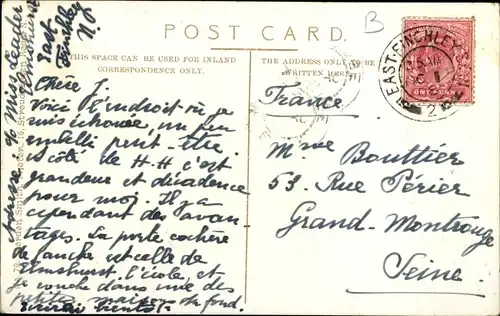 POST CARD.
THIS SPACE CAN BE USED FOR INLAND
CORRESPONDENCE ONLY.
WRITTEN HERE
B
EAST-FINCHLEY
ONE PENNY
Adresse : c/o Miss
Elmshurst
East
Finchley
N.
Chère J.
Voici l'endroit où je
suis échouée, un peu
embelli peut-être
à côté de H-H c'est
grandeur et décadence
pour moi. Il y a
cependant des avan
tages. La porte cochère
de gauche est celle de
Elmshurst l'école, et
je couche dans une des
petites maisons du fond.
Écrirai bientôt.
France
Mme Bouttier
53. Rue Périer
Grand-Montrouge
Seine.